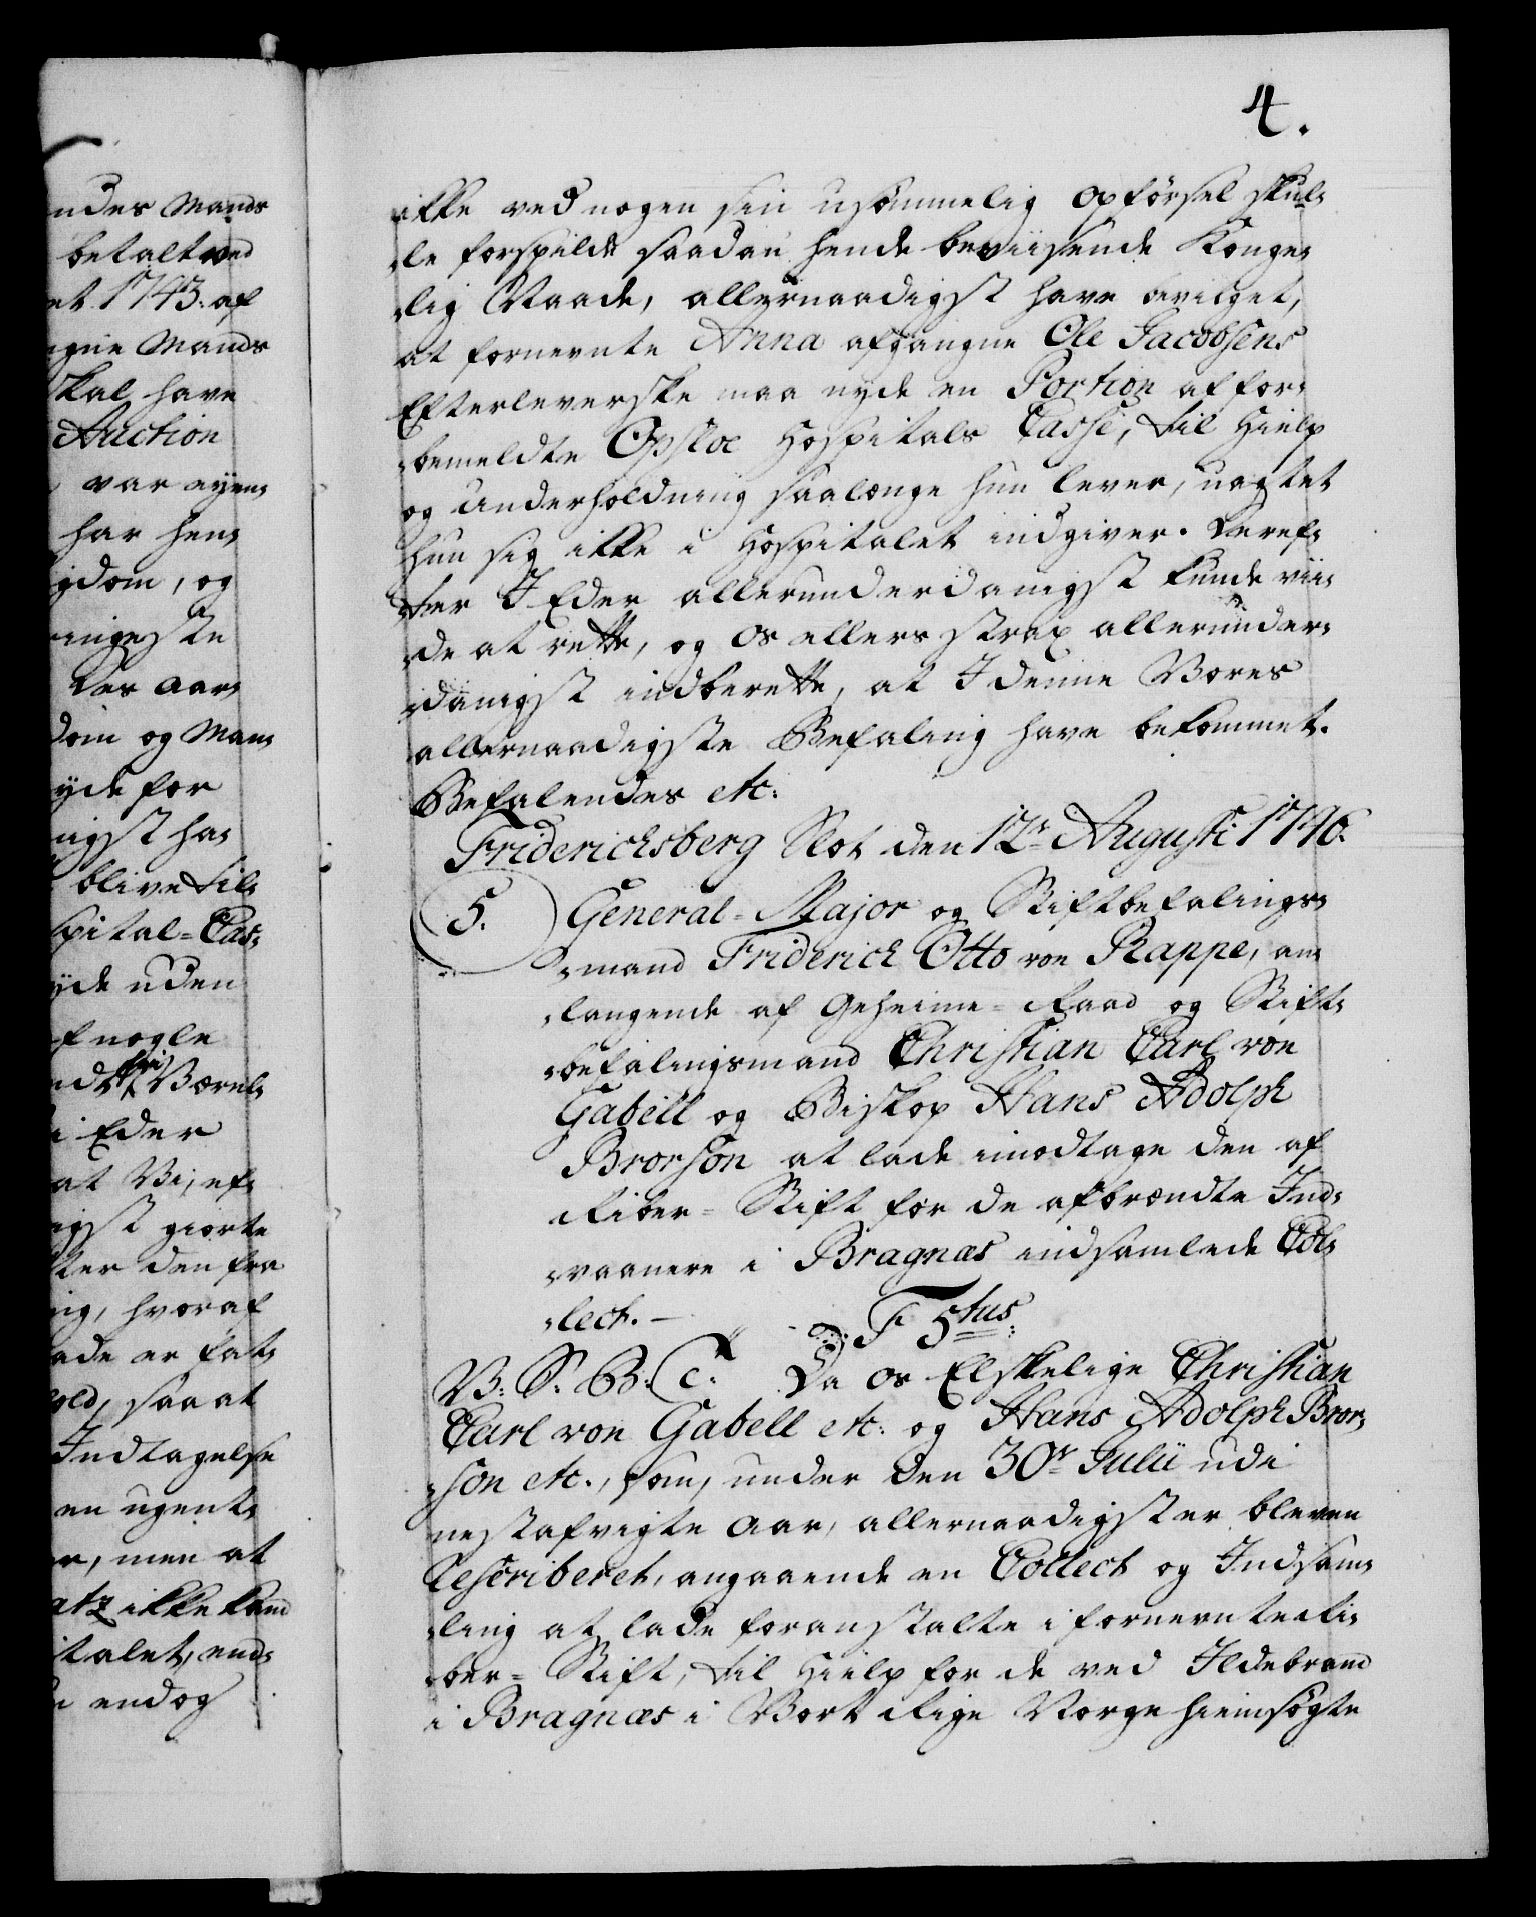 ndes Mands
betalt ved
et 1743. af
gne Mands
skal have
Auction
var eyen¬
har hen¬
gdom, og
ringeste
Des Aar¬
dom og Man¬
yde for
nigst ha¬
blive til¬
spital-Cas¬
yde uden
f nogle
ndt fri Værel¬
i Eder
at Vi, ef¬
igst giorte
ter den fra
ing, hvoraf
ade er fat¬
old, saa at
Indtagelse
en ugent¬
er, men at
atz ikke kand
talet, end¬
endog
4.
ikke ved nogen sin usømmelig opførsel skul¬
le forspilde saadan hende beviisende Konge¬
lig Naade, allernaadigst have bevilget,
at fornevnte Anna afgangne Ole Jacobsens
Efterleverske maa nyde en Portion af for¬
bemeldte Opsloe Hospitals Casse, til Hielp
og Underholdning saalænge hun lever, uagtet
hun sig ikke i Hospitalet indgiver. Deref¬
ter I Eder allerunderdanigst kunde vii¬
de at rette, og Os ellers strax allerunder¬
danigst indberette, at I denne Vores
allernaadigste Befaling have bekommet.
Befalendes etc:
Friderichsberg Slot den 12te Augusti 1746.
5. General-Major og Stiftbefalings¬
mand Friderich Otto von Rappe, an¬
langende af Geheime-Raad og Stift¬
befalingsmand Christian Carl von
Gabell og Biskop Hans Adolph
Brorson at lade imodtage den af
Riber-Stift for de afbrændte Ind¬
vaanere i Bragnæs indsamlede Col¬
lect. —
F 5tus
V: S: B: C: Da Os Elskelige Christian
Carl von Gabell etc: og Hans Adolph Bror¬
son etc., som, under den 30te Julii udi
nestafvigte Aar, allernaadigst er bleven
rescriberet, angaaende en Collect og Indsam¬
ling at lade foranstalte i fornevnte Ri¬
ber-Stift, til Hielp for de ved Ildebrand
i Bragnæs i Vort Rige Norge hiemsøgte